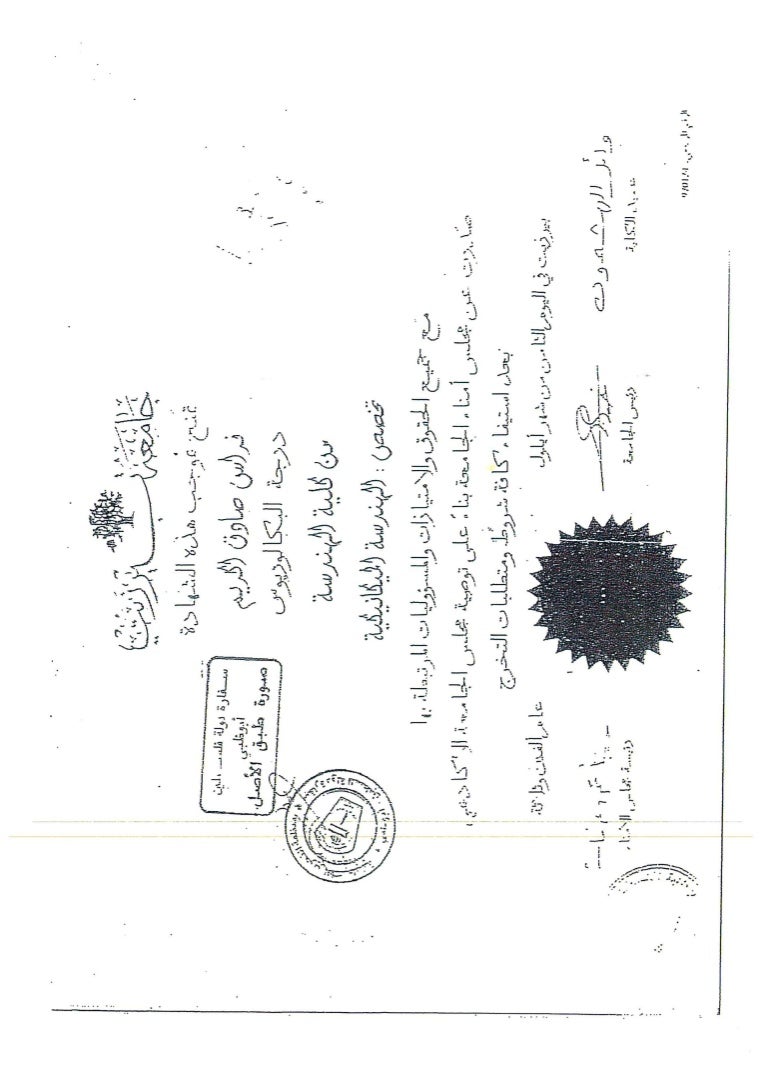 جامعة بيرزيت
تمنح بموجب هذه الشهادة
فراس صادق الكريم
درجة البكالوريوس
من كلية الهندسة
تخصص : الهندسة الميكانيكية
مع جميع الحقوق والامتيازات والمسؤوليات المرتبطة بها
صدرت عن مجلس أمناء الجامعة بناءً على توصية مجلس الجامعة الأكاديمي
بعد استيفاء كافة شروط ومتطلبات التخرج
بيرزيت في اليوم الثامن من شهر أيلول
عام ألفين وثلاثة
عميد الكلية
رئيس الجامعة
رئيسة مجلس الأمناء
سفارة دولة فلسطين
أبوظبي
صورة طبق الأصل